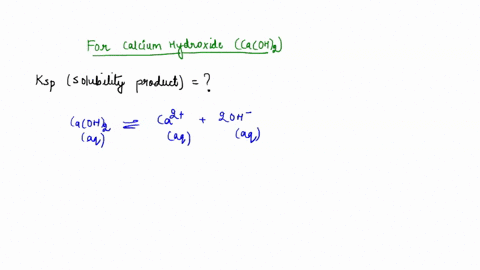 For Calcium Hydroxide (Ca(OH)2)
Ksp (solubility product) = ?
Ca(OH)2 ⇌ Ca2+ + 2OH-
(aq) (aq) (aq)